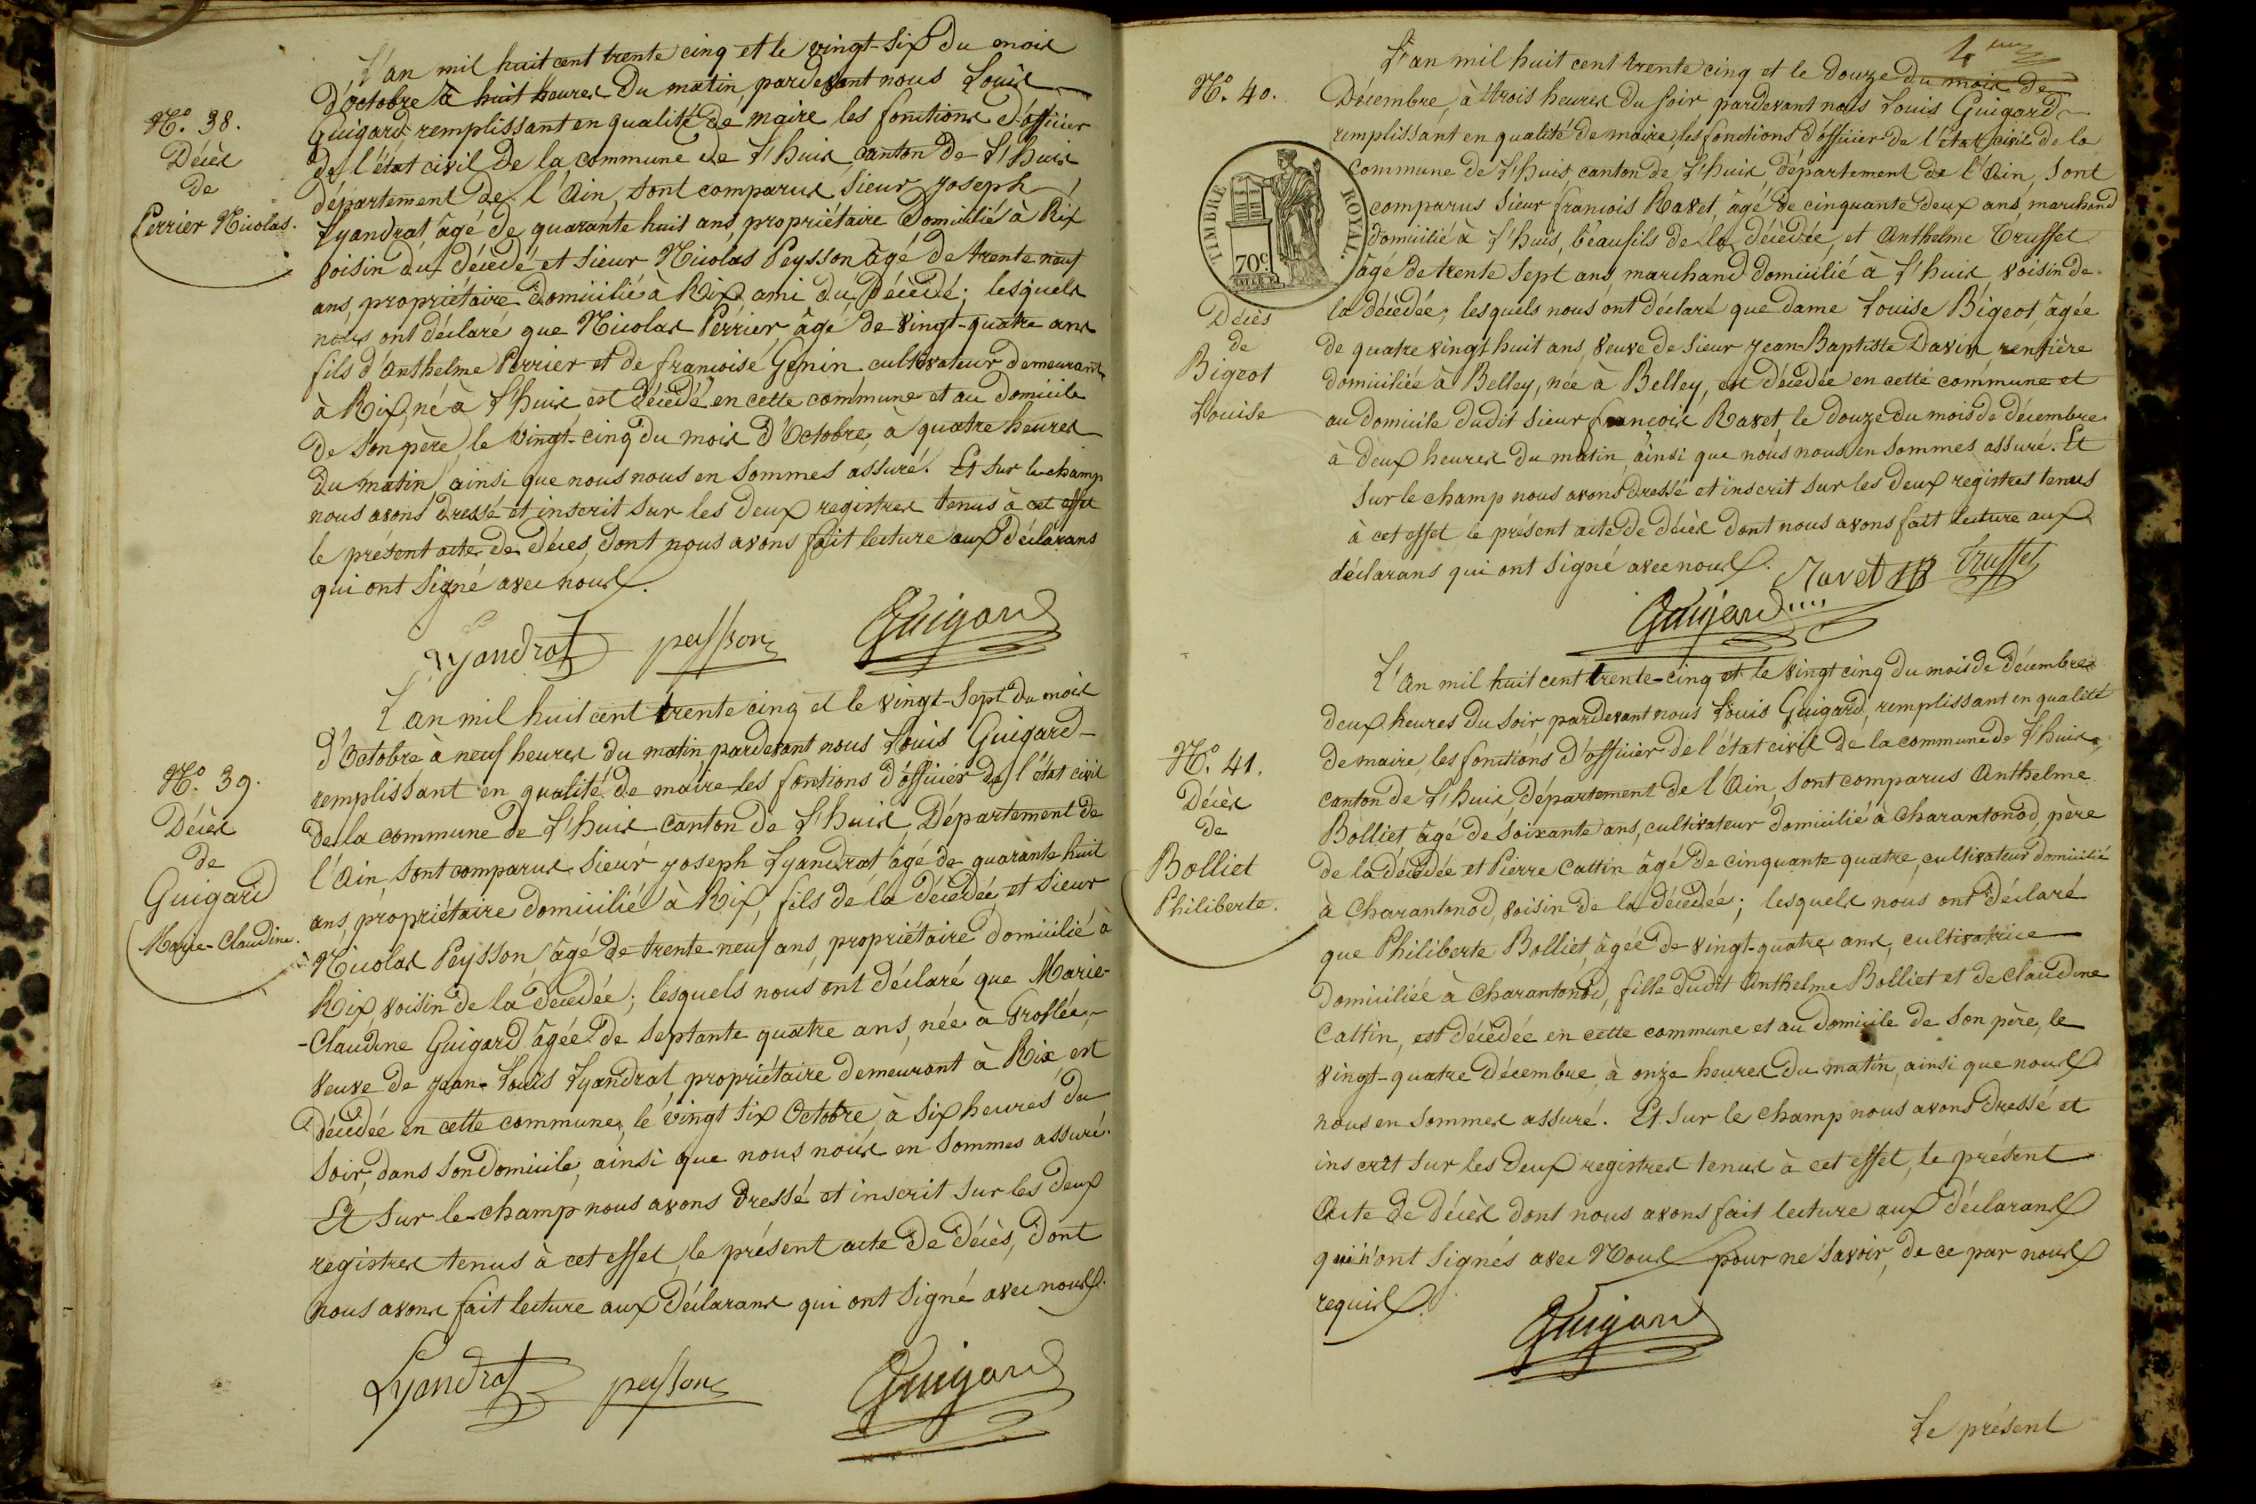 N.º 38.
Décès
de
Perrier Nicolas.
L'an mil huit cent trente cinq et le vingt-six du mois
d'Octobre à huit heures du matin pardevant nous Louis
Guigard remplissant en qualité de maire les fonctions d'officier
de l'état civil de la commune de L'huis, canton de L'huis
département de l'Ain, sont comparus sieur Joseph
Lyandrat âgé de quarante huit ans, propriétaire domicilié à Rix
voisin du décédé et sieur Nicolas Peysson âgé de trente neuf
ans, propriétaire domicilié à Rix ami du décédé; lesquels
nous ont déclaré que Nicolas Perrier, âgé de vingt-quatre ans
fils d'Anthelme Perrier et de françoise Genin cultivateur demeurant
à Rix, né à L'huis est décédé en cette commune et au domicile
de son père, le vingt-cinq du mois d'Octobre, à quatre heures
du matin ainsi que nous nous en sommes assuré. Et sur le champ
nous avons dressé et inscrit sur les deux registres tenus à cet effet
le présent acte de décès, dont nous avons fait lecture aux déclarans
qui ont signé avec nous.
Lyandrat peysson Guigard
N.º 39.
Décès
de
Guigard
Marie-Claudine.
L'an mil huit cent trente cinq et le vingt-sept du mois
d'Octobre à neuf heures du matin, pardevant nous Louis Guigard
remplissant en qualité de maire les fonctions d'officier de l'état civil
de la commune de L'huis canton de L'huis, Département de
l'Ain, sont comparus sieur Joseph Lyandrat âgé de quarante huit
ans, propriétaire domicilié à Rix, fils de la décédée et sieur
Nicolas Peysson, âgé de trente neuf ans, propriétaire domicilié à
Rix, voisin de la décédée; lesquels nous ont déclaré que Marie-
-Claudine Guigard âgée de septante quatre ans, née à Groslée,
veuve de Jean-Louis Lyandrat propriétaire demeurant à Rix est
décédée en cette commune, le vingt six Octobre, à six heures du
soir, dans son domicile, ainsi que nous nous en sommes assuré.
Et sur le champ nous avons dressé et inscrit sur les deux
registres tenus à cet effet, le présent acte de décès, dont
nous avons fait lecture aux déclarans qui ont signé avec nous.
Lyandrat peysson Guigard
N.º 40.
TIMBRE ROYAL.
70c
Décès
de
Bigeot
Louise
L'an mil huit cent trente cinq et le douze du mois de
Décembre, à trois heures du soir pardevant nous Louis Guigard
remplissant en qualité de maire, les fonctions d'officier de l'état civil de la
commune de L'huis, canton de L'huis, département de l'Ain, sont
comparus sieur françois Ravet, âgé de cinquante deux ans, marchand
domicilié à L'huis, beaufils de la décédée, et Anthelme Truffet
âgé de trente sept ans, marchand domicilié à L'huis, voisin de
la décédée; lesquels nous ont déclaré que dame Louise Bigeot, âgée
de quatre vingt huit ans, veuve de sieur Jean-Baptiste Davin, rentière
domiciliée à Belley, née à Belley, est décédée en cette commune et
au domicile dudit sieur françois Ravet, le douze du mois de décembre
à deux heures du matin, ainsi que nous nous en sommes assuré. Et
sur le champ nous avons dressé et inscrit sur les deux registres tenus
à cet effet le présent acte de décès dont nous avons fait lecture aux
déclarans qui ont signé avec nous.
Ravet Truffet
Guigard
N.º 41.
Décès
de
Bolliet
Philiberte.
L'an mil huit cent trente-cinq et le vingt cinq du mois de décembre
deux heures du soir, pardevant nous Louis Guigard, remplissant en qualité
de maire, les fonctions d'officier de l'état civil de la commune de L'huis,
canton de L'huis, département de l'Ain, sont comparus Anthelme
Bolliet âgé de soixante ans, cultivateur domicilié à Charantonod, père
de la décédée et Pierre Cattin âgé de cinquante quatre, cultivateur domicilié
à Charantonod, voisin de la décédée; lesquels nous ont déclaré
que Philiberte Bolliet, âgée de vingt-quatre ans, cultivatrice
domiciliée à Charantonod, fille dudit Anthelme Bolliet et de Claudine
Cattin, est décédée en cette commune et au domicile de son père, le
vingt-quatre Décembre à onze heures du matin, ainsi que nous
nous en sommes assuré. Et sur le champ nous avons dressé et
inscrit sur les deux registres tenus à cet effet, le présent
Acte de décès dont nous avons fait lecture aux déclarans
qui n'ont signés avec Nous pour ne savoir, de ce par nous
requis.
Guigard
Le présent